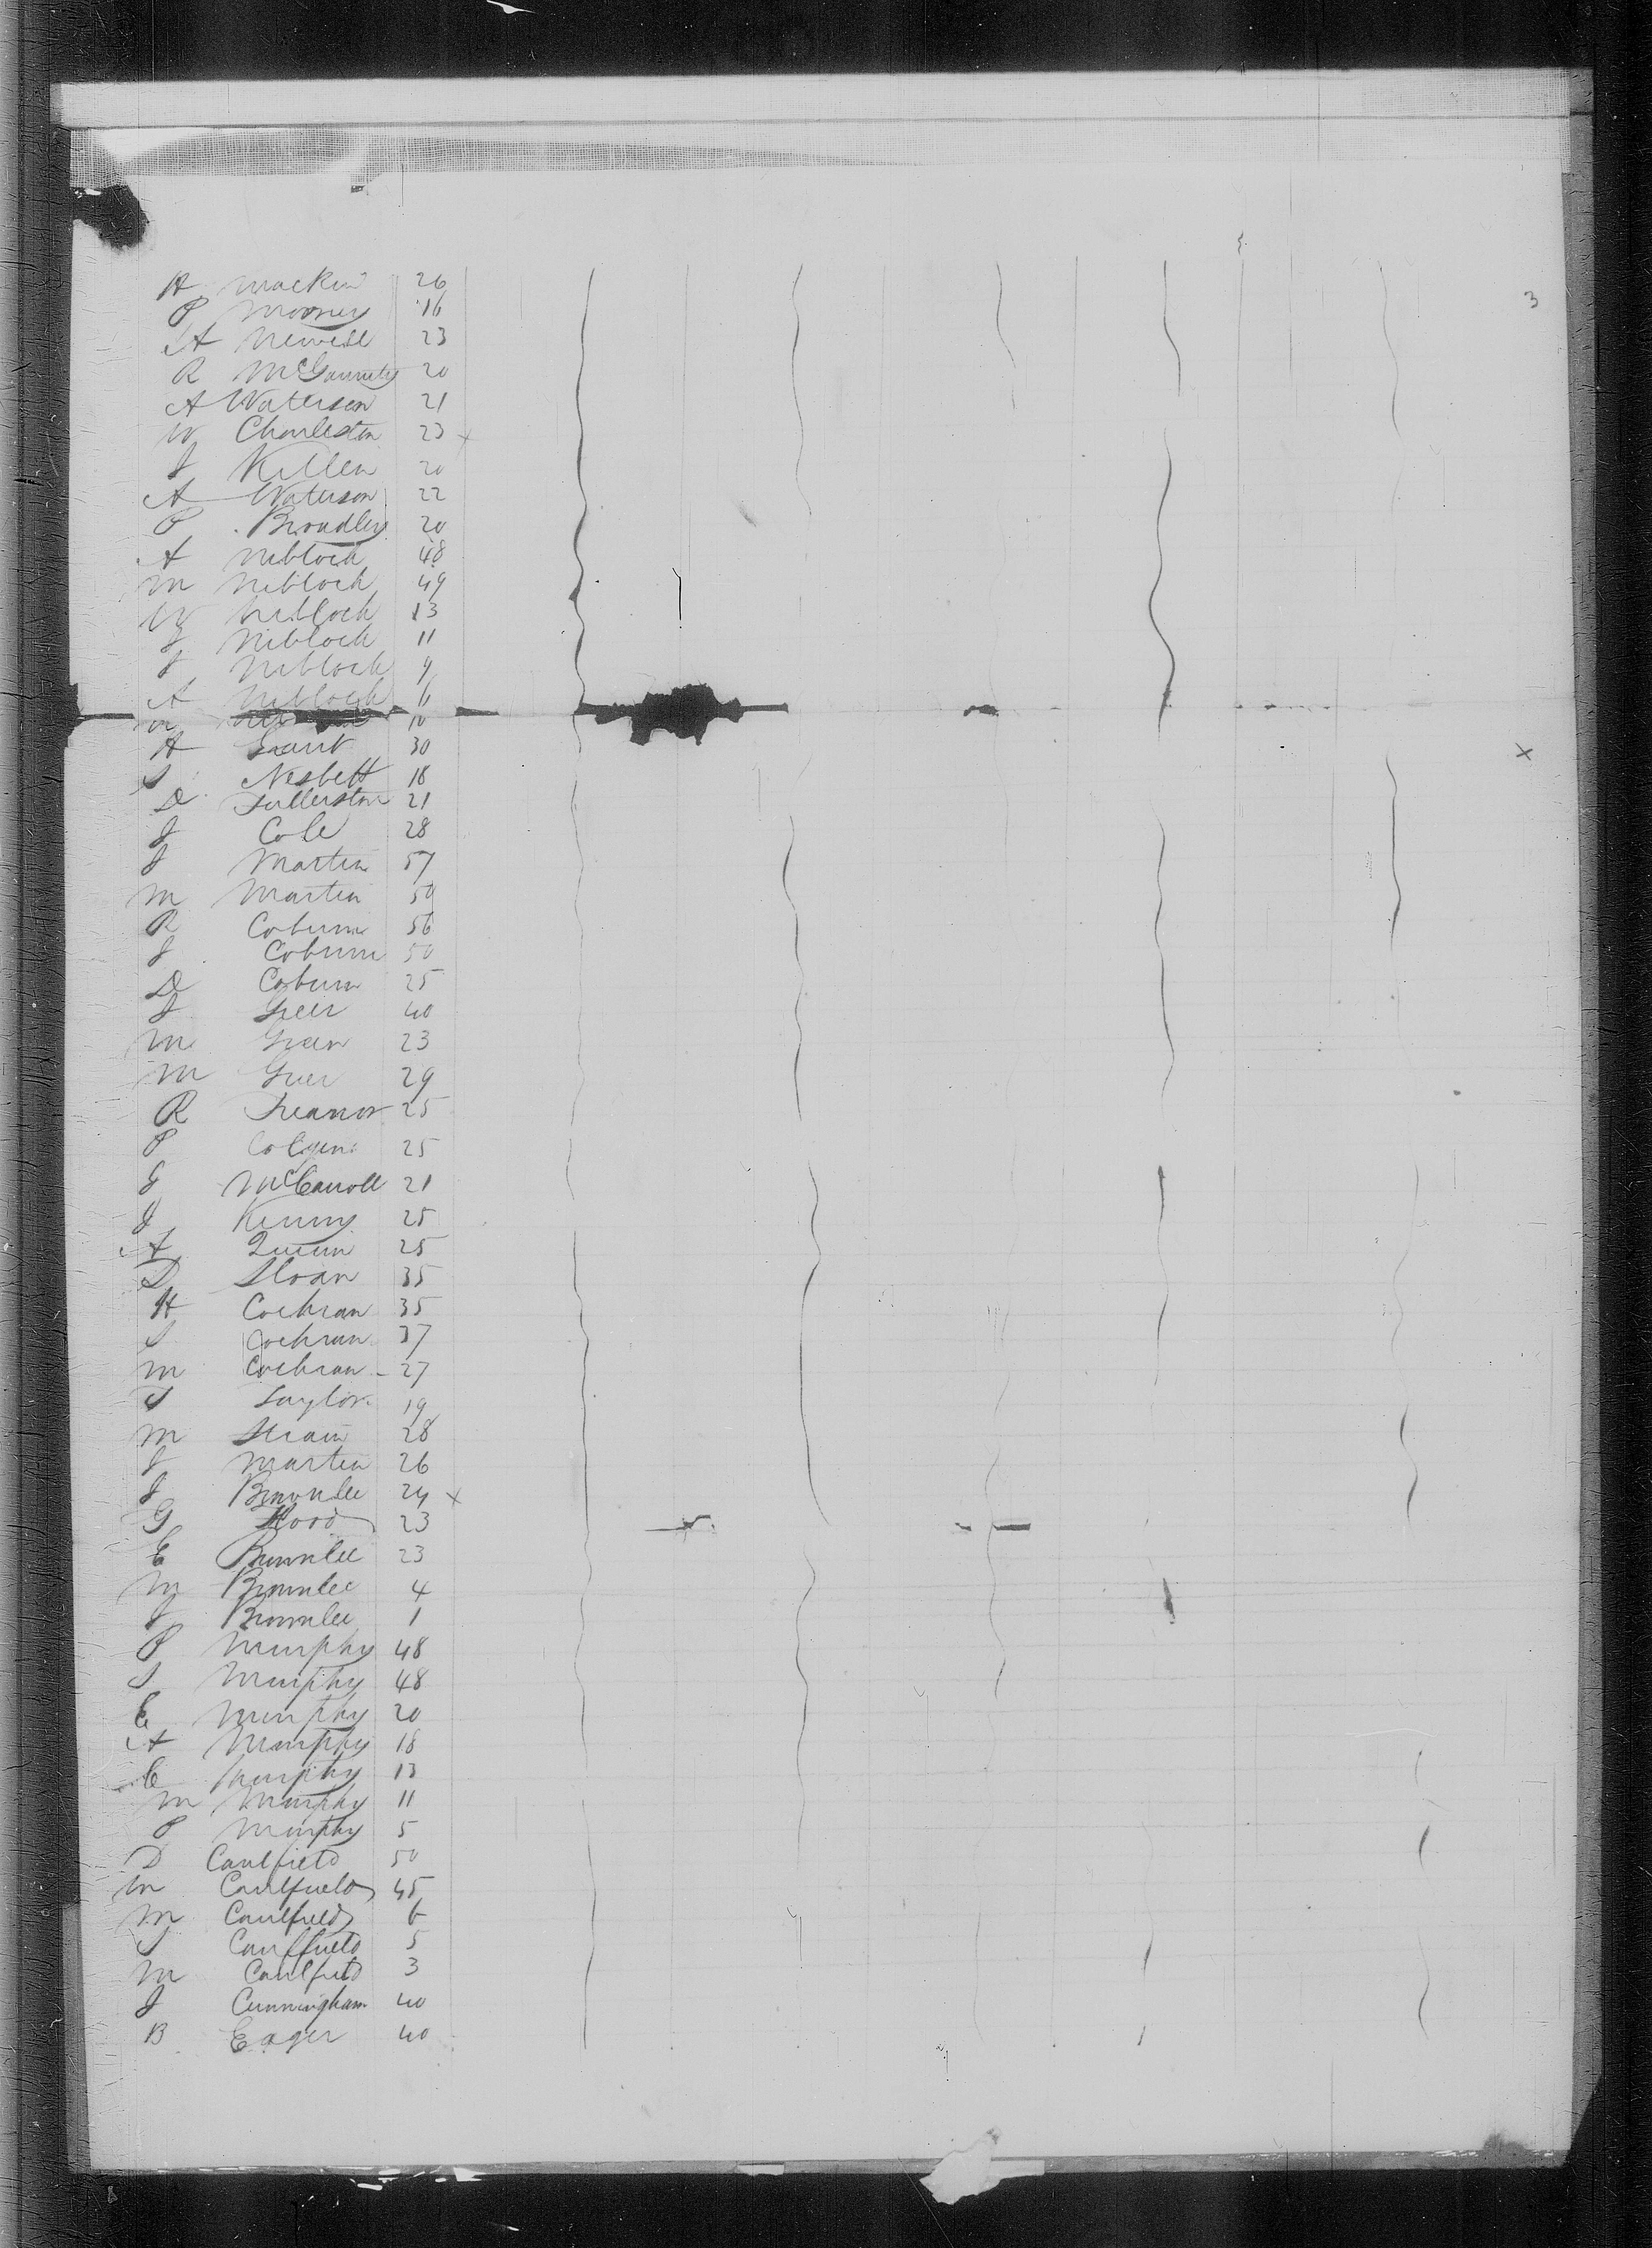 H Mackin 26
3
P Mooney 16
A Newell 23
R McGaunety 20
A Waterson 21
W Charleston 23 x
J Killen 20
A Waterson 22
P Broadley 20
A Niblock 48
M Niblock 49
W Niblock 13
J Niblock 11
J Niblock 9
A Niblock 6
M 10
A Gant 30
x
S Nesbett 18
D Fullerston 21
J Cole 28
J Martin 57
M Martin 50
R Coburn 56
J Coburn 50
D Coburn 25
J Greer 40
M Green 23
M Greer 29
R Treanor 25
P Colgen 25
J McCarroll 21
J Kenny 25
A Quinn 25
D Sloan 35
H Cochran 35
S Cochran 37
M Cochran 27
S Taylor 19
M Strain 28
J Martin 26
J Brownlee 24 x
G Hood 23
E Brownlee 23
M Brownlee 4
J Brownlee 1
P Murphy 48
S Murphy 48
E Murphy 20
A Murphy 18
C Murphy 13
M Murphy 11
P Murphy 5
D Caulfield 50
M Caulfield 45
M Caulfield 6
S Caulfield 5
M Caulfield 3
J Cunningham 40
B Eager 40